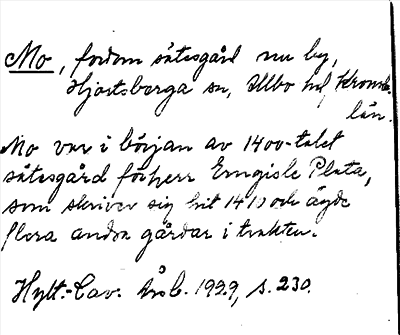 Mo, fordom sätesgård nu by,
Hjortsberga sn, Allbo hd, Kronob.
län.
Mo var i början av 1400-talet
sätesgård för herr Erngisle Plata,
som skriver sig hit 141) och ägde
flera andra gårdar i trakten.
Hylt.-Cav. Årsb. 1929, s. 230.